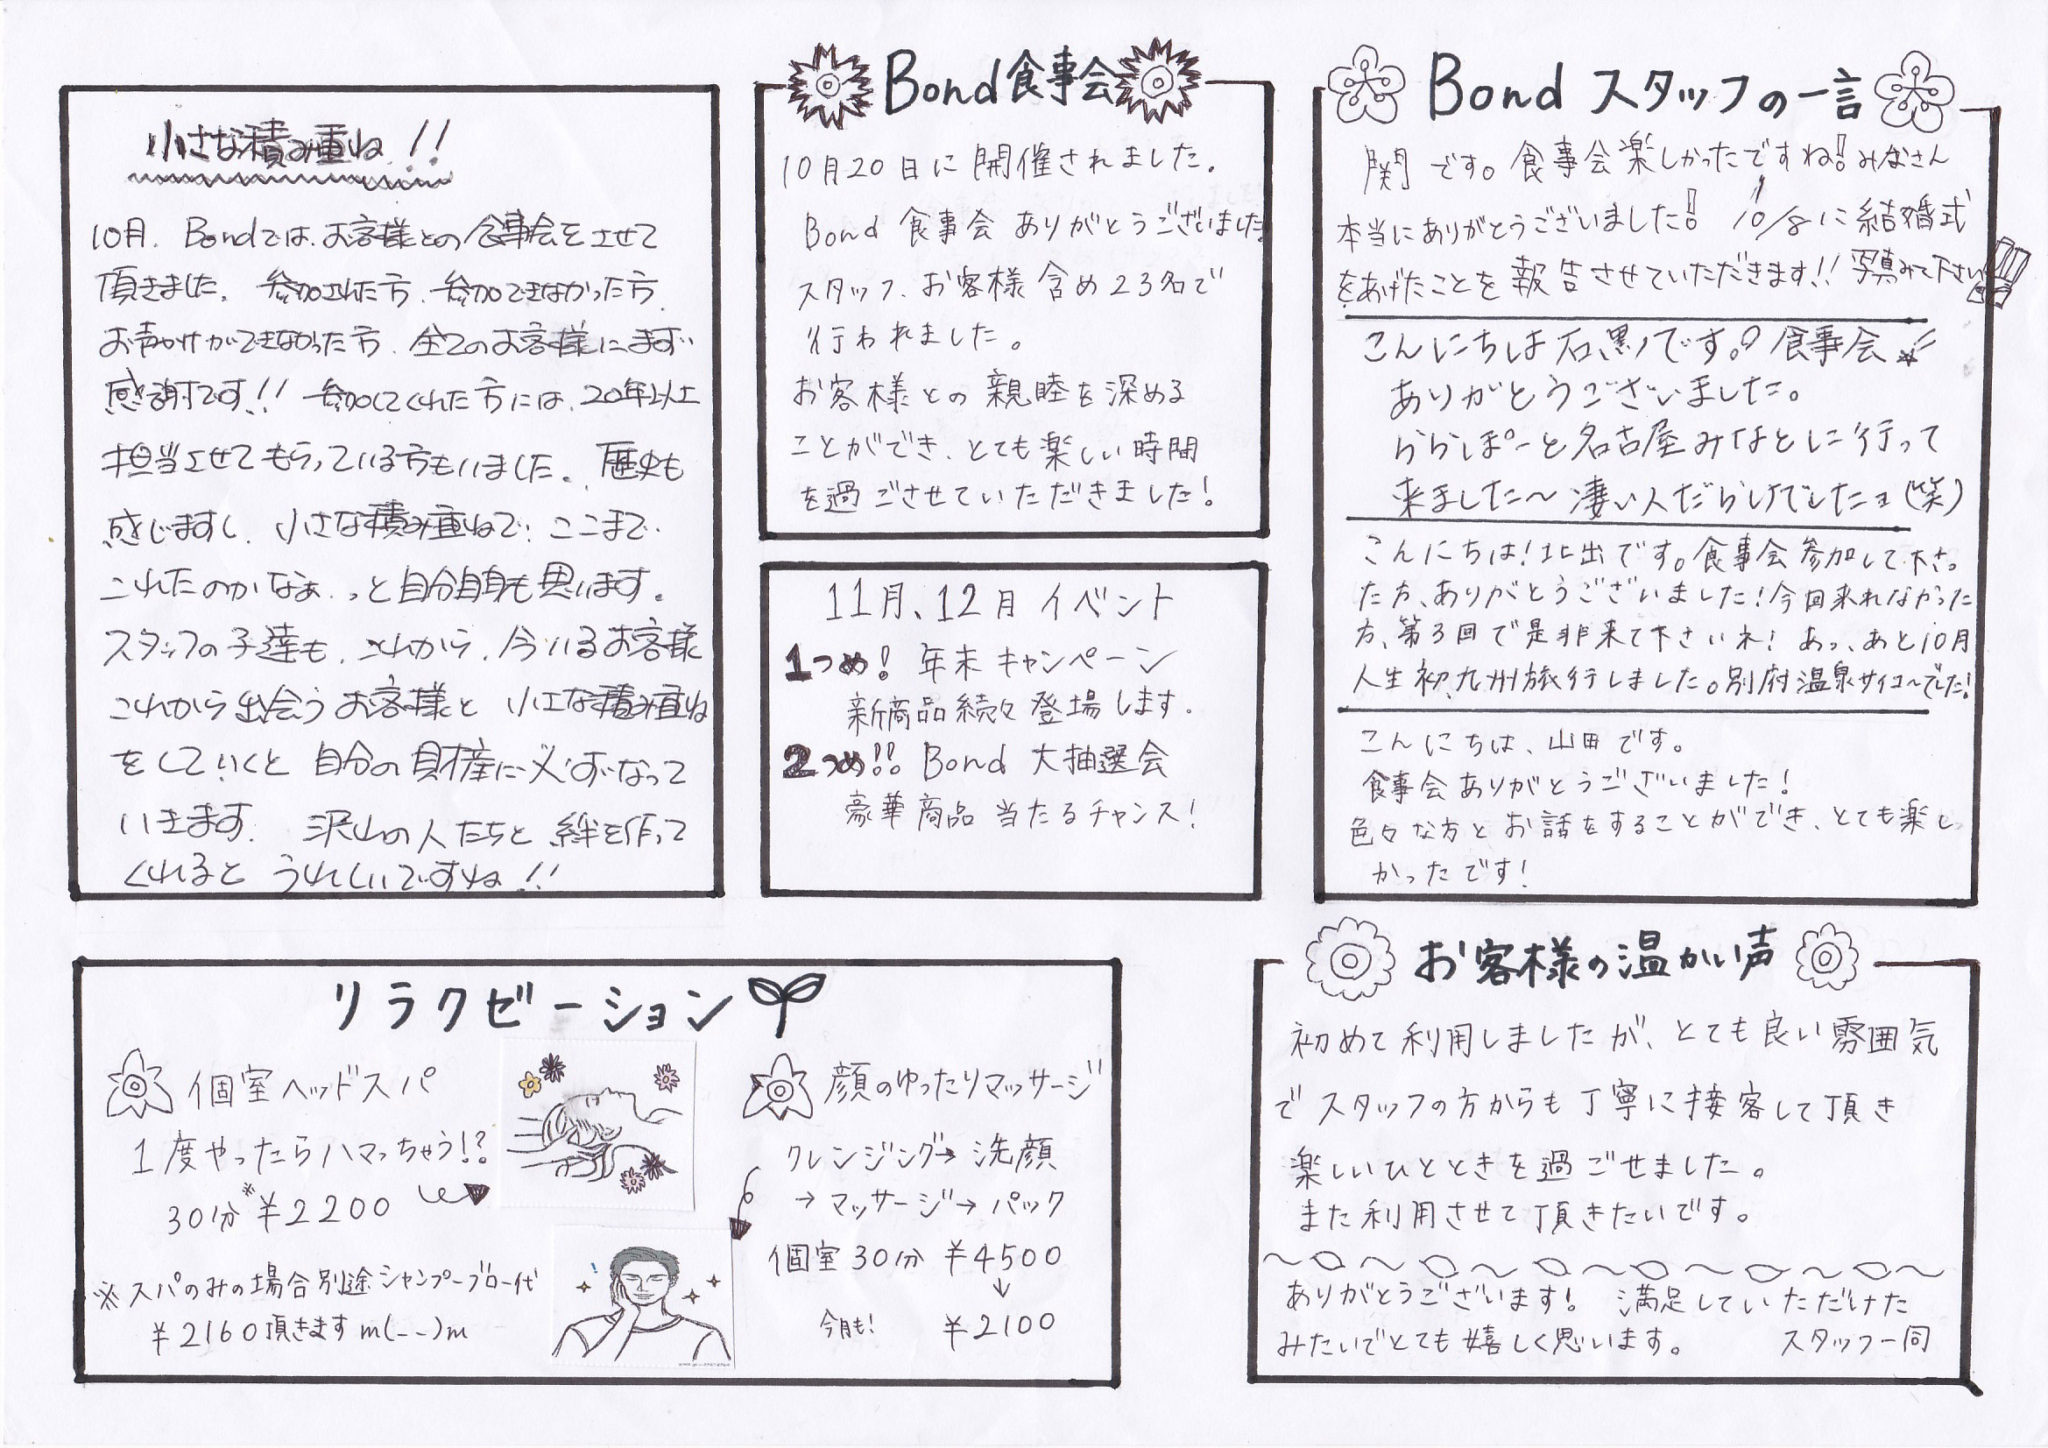 小さな積み重ね!!
10月、Bondでは、お客様との食事会をさせて
頂きました。参加された方、参加できなかった方、
お声かけができなかった方、全てのお客様にまず
感謝です!! 参加してくれた方には、20年以上
担当させてもらっている方もいました。歴史も
感じますし、小さな積み重ねで、ここまで
これたのかなぁ、っと自分自身も思います。
スタッフの子達も、これから、今いるお客様
これから出会うお客様と 小さな積み重ね
をしていくと 自分の財産に必ずなって
いきます。 沢山の人たちと 絆を作って
くれると うれしいですね!!
Bond食事会
10月20日に開催されました。
Bond 食事会 ありがとうございました
スタッフ、お客様 含め23名で
行われました。
お客様との親睦を深める
ことができ、とても楽しい時間
を過ごさせていただきました!
11月、12月 イベント
1つめ! 年末 キャンペーン
新商品続々登場します。
2つめ!! Bond 大抽選会
豪華商品 当たるチャンス!
Bond スタッフの一言
関です。食事会楽しかったですね!みなさん
本当にありがとうございました! 10/8に結婚式
をあげたことを報告させていただきます!! 写真みて下さい
こんにちは石黒です。 食事会
ありがとうございました。
ららぽーと名古屋みなとに行って
来ました〜 凄い人だらけでしたョ(笑)
こんにちは!北出です。食事会参加して下さっ
た方、ありがとうございました!今回来れなかった
方、第3回で是非来て下さいネ! あっ、あと10月
人生初、九州旅行しました。別府温泉サイコ〜でした!
こんにちは、山田です。
食事会ありがとうございました!
色々な方とお話をすることができ、とても楽し
かったです!
リラクゼーション
個室ヘッドスパ
1度やったらハマっちゃう!?
30分※¥2200
※スパのみの場合別途シャンプーブロー代
¥2160頂きます m(_ _)m
顔のゆったりマッサージ
クレンジング→洗顔
→マッサージ→パック
個室30分 ¥4500
↓
今月も! ¥2100
お客様の温かい声
初めて利用しましたが、とても良い雰囲気
でスタッフの方からも丁寧に接客して頂き
楽しいひとときを過ごせました。
また利用させて頂きたいです。
ありがとうございます! 満足していただけた
みたいでとても嬉しく思います。 スタッフ一同